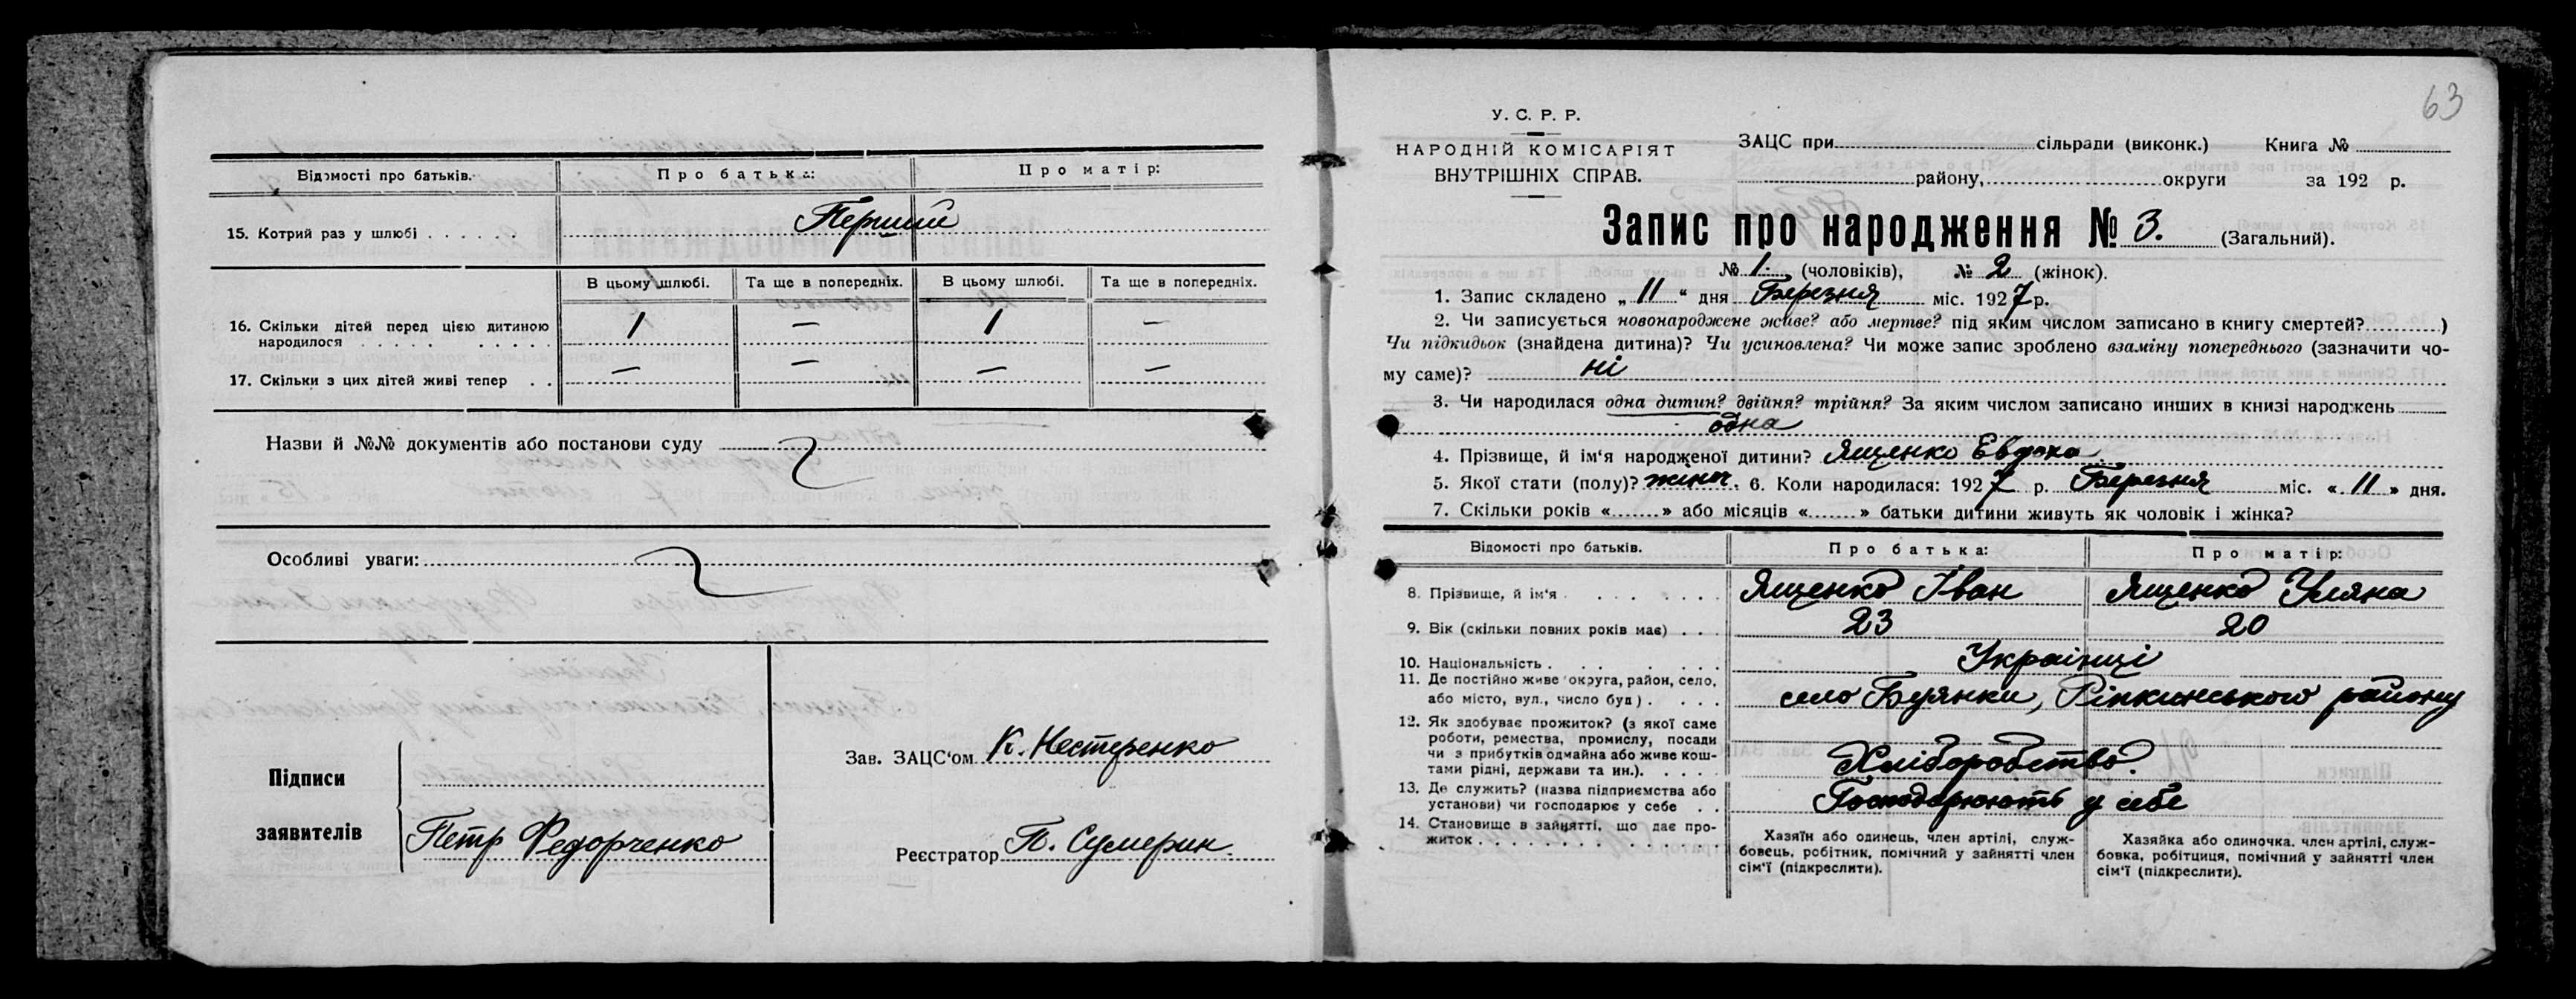 Відомості про батьків.
Про батька:
Про матір:
15. Котрий раз у шлюбі
Перший
В цьому шлюбі.
Та ще в попередніх.
В цьому шлюбі.
Та ще в попередніх.
16. Скільки дітей перед цією дитиною
народилося
1 — 1 —
17. Скільки з цих дітей живі тепер
— — — —
Назви й №№ документів або постанови суду
Особливі уваги:
Підписи
заявителів
Петр Федорченко
Зав. ЗАЦС'ом К. Нестеренко
Реєстратор П. Сумерин.
63
У. С. Р. Р.
НАРОДНІЙ КОМІСАРІЯТ
ВНУТРІШНІХ СПРАВ.
ЗАЦС при сільради (виконк.) Книга №
району, округи за 192 р.
Запис про народження № 3. (Загальний).
№ 1. (чоловіків), № 2 (жінок).
1. Запис складено „ 11 “ дня Березня міс. 1927 р.
2. Чи записується новонароджене живе? або мертве? під яким числом записано в книгу смертей? )
Чи підкидьок (знайдена дитина)? Чи усиновлена? Чи може запис зроблено взаміну попереднього (зазначити чо-
му саме)? ні
3. Чи народилася одна дитин? двійня? трійня? За яким числом записано инших в книзі народжень
одна
4. Прізвище, й ім‘я народженої дитини? Ященко Евдоха
5. Якої стати (полу)? жіноч. 6. Коли народилася: 1927 р. Березня міс. « 11 » дня.
7. Скільки років « » або місяців « » батьки дитини живуть як чоловік і жінка?
Відомості про батьків.
Про батька:
Про матір:
8. Прізвище, й ім‘я
Ященко Іван
Ященко Уляна
9. Вік (скільки повних років має)
23
20
10. Національність
Українці
11. Де постійно живе округа, район, село,
або місто, вул., число буд).
село Буянки, Ріпкинського району
12. Як здобуває прожиток? (з якої саме
роботи, ремества, промислу, посади
чи з прибутків одмайна або живе кош-
тами рідні, держави та ин.).
Хліборобство.
13. Де служить? (назва підприємства або
установи) чи господарює у себе
Господарюють у себе
14. Становище в зайнятті, що дає про-
житок
Хазяїн або одинець, член артілі, служ-
бовець, робітник, помічний у зайнятті член
сім'ї (підкреслити).
Хазяйка або одиночка, член артілі, служ-
бовка, робітциця, помічний у зайнятті член
сім'ї (підкреслити).